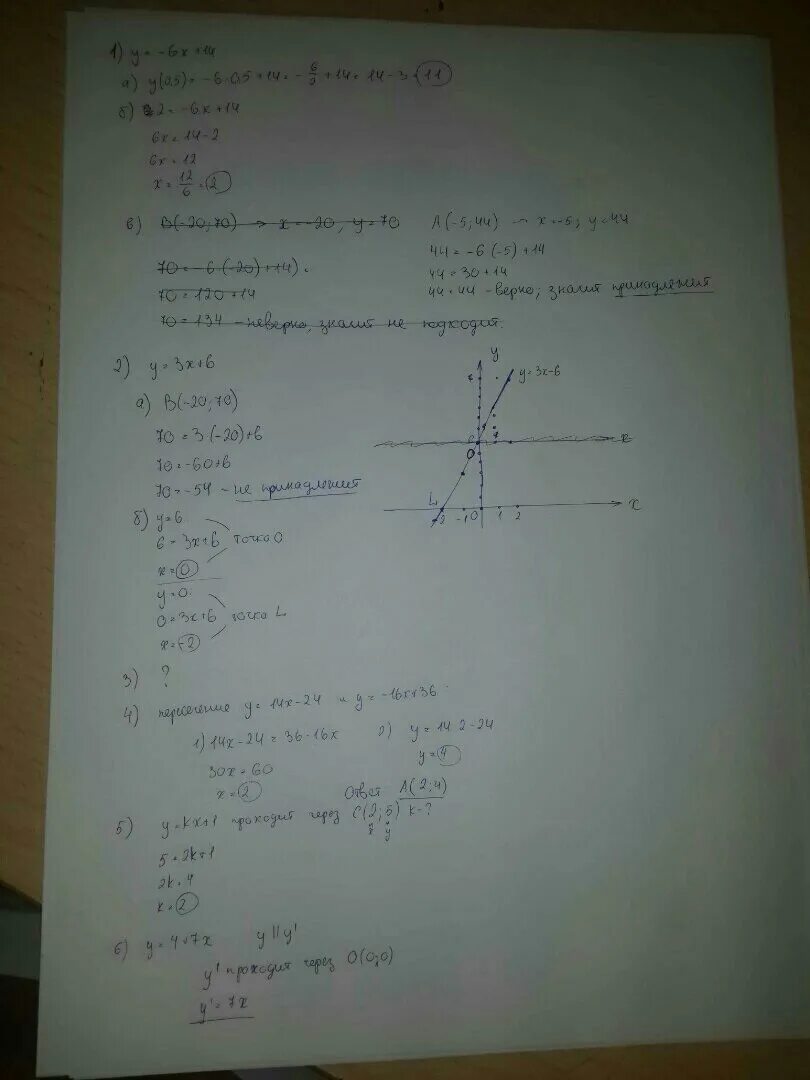 1) y = -6x+14
а) y(0,5) = -6·0,5+14 = -6/2+14 = 14-3 = 11
б) 2 = -6x+14
6x = 14-2
6x = 12
x = 12/6 = 2
в) B(-20;70) → x = -20, y = 70
70 = -6(-20)+14
70 = 120+14
70 = 134 - неверно, значит не подходит.
A(-5;44) ~ x=-5; y=44
44 = -6(-5)+14
44 = 30+14
44 = 44 - верно; значит принадлежит
2) y = 3x+6
а) B(-20;70)
70 = 3(-20)+6
70 = -60+6
70 = -54 - не принадлежит
б) y=6
6 = 3x+6 точка O
x = 0
y = 0
0 = 3x+6 точка L
x = -2
y
y=3x-6
x
O
L
x
-2 -1 0 1 2
3) ?
4) пересечение y = 14x-24 и y = -16x+36
1) 14x-24 = 36-16x
30x = 60
x = 2
2) y = 14·2-24
y = 4
Ответ A(2;4)
5) y=kx+1 проходит через C(2;5) k-?
x y
5 = 2k+1
2k = 4
k = 2
6) y = 4+7x y || y'
y' проходит через O(0;0)
y' = 7x